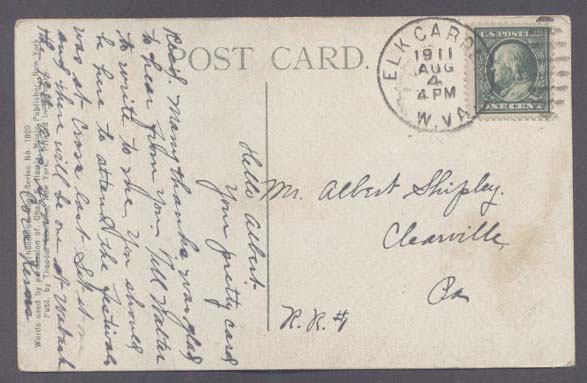 POST CARD.
ELK GARDEN
1911
AUG
4
4 PM
W. VA.
U.S. POSTAGE
ONE CENT
Mr. Albert Shipley.
Clearville,
Pa
R.R. #1
Hello Albert.
Your pretty card
Rec'd. Many thanks, was glad
to hear from you. Tell Walter
to write to me. You should
be here to attend the festivals
was at Cross last Sat
and there will be one at Wabash
Series No. 1929
Words used by permission of Chas. K. Harris, Music Publisher, New York.
Publ. by Theodor New York.